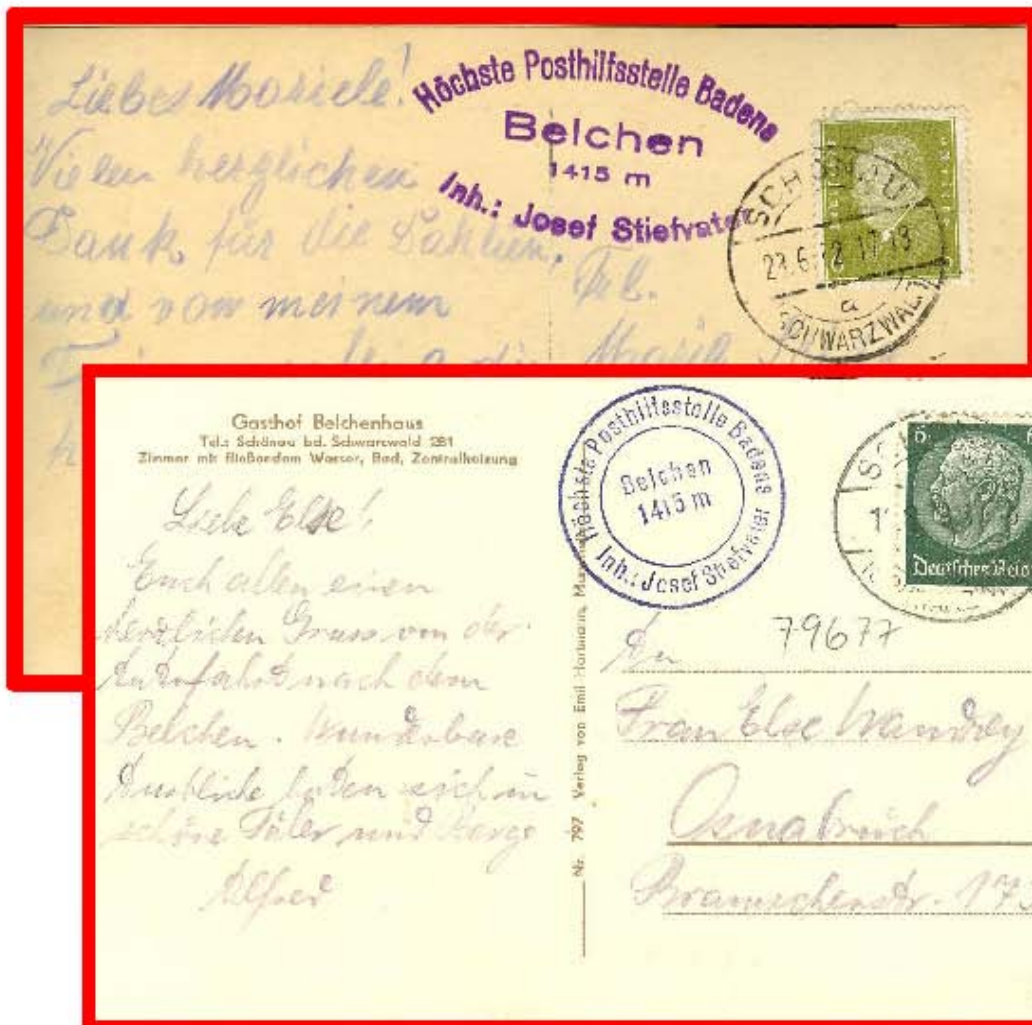 Liebes Mariele!
Vielen herzlichen
Dank für die
und von meinem
Höchste Posthilfsstelle Badens
Belchen
1415 m
Inh.: Josef Stiefvater
SCHÖNAU
17-19
a
SCHWARZWALD
Frl.
Gasthof Belchenhaus
Tel.: Schönau bd. Schwarzwald 281
Zimmer mit fließendem Wasser, Bad, Zentralheizung
Liebe Else!
Euch allen einen
herzlichen Gruss von der
Autofahrt nach dem
Belchen. Wunderbare
Ausblicke boten sich in
schöne Täler und Berge
Alfred
Nr. 797 Verlag von Emil Hartmann,
Höchste Posthilfsstelle Badens
Belchen
1415 m
Inh.: Josef Stiefvater
6
Deutsches Reich
79677
An
Frau Else Wandrey
Osnabrück
Bramscherstr. 173